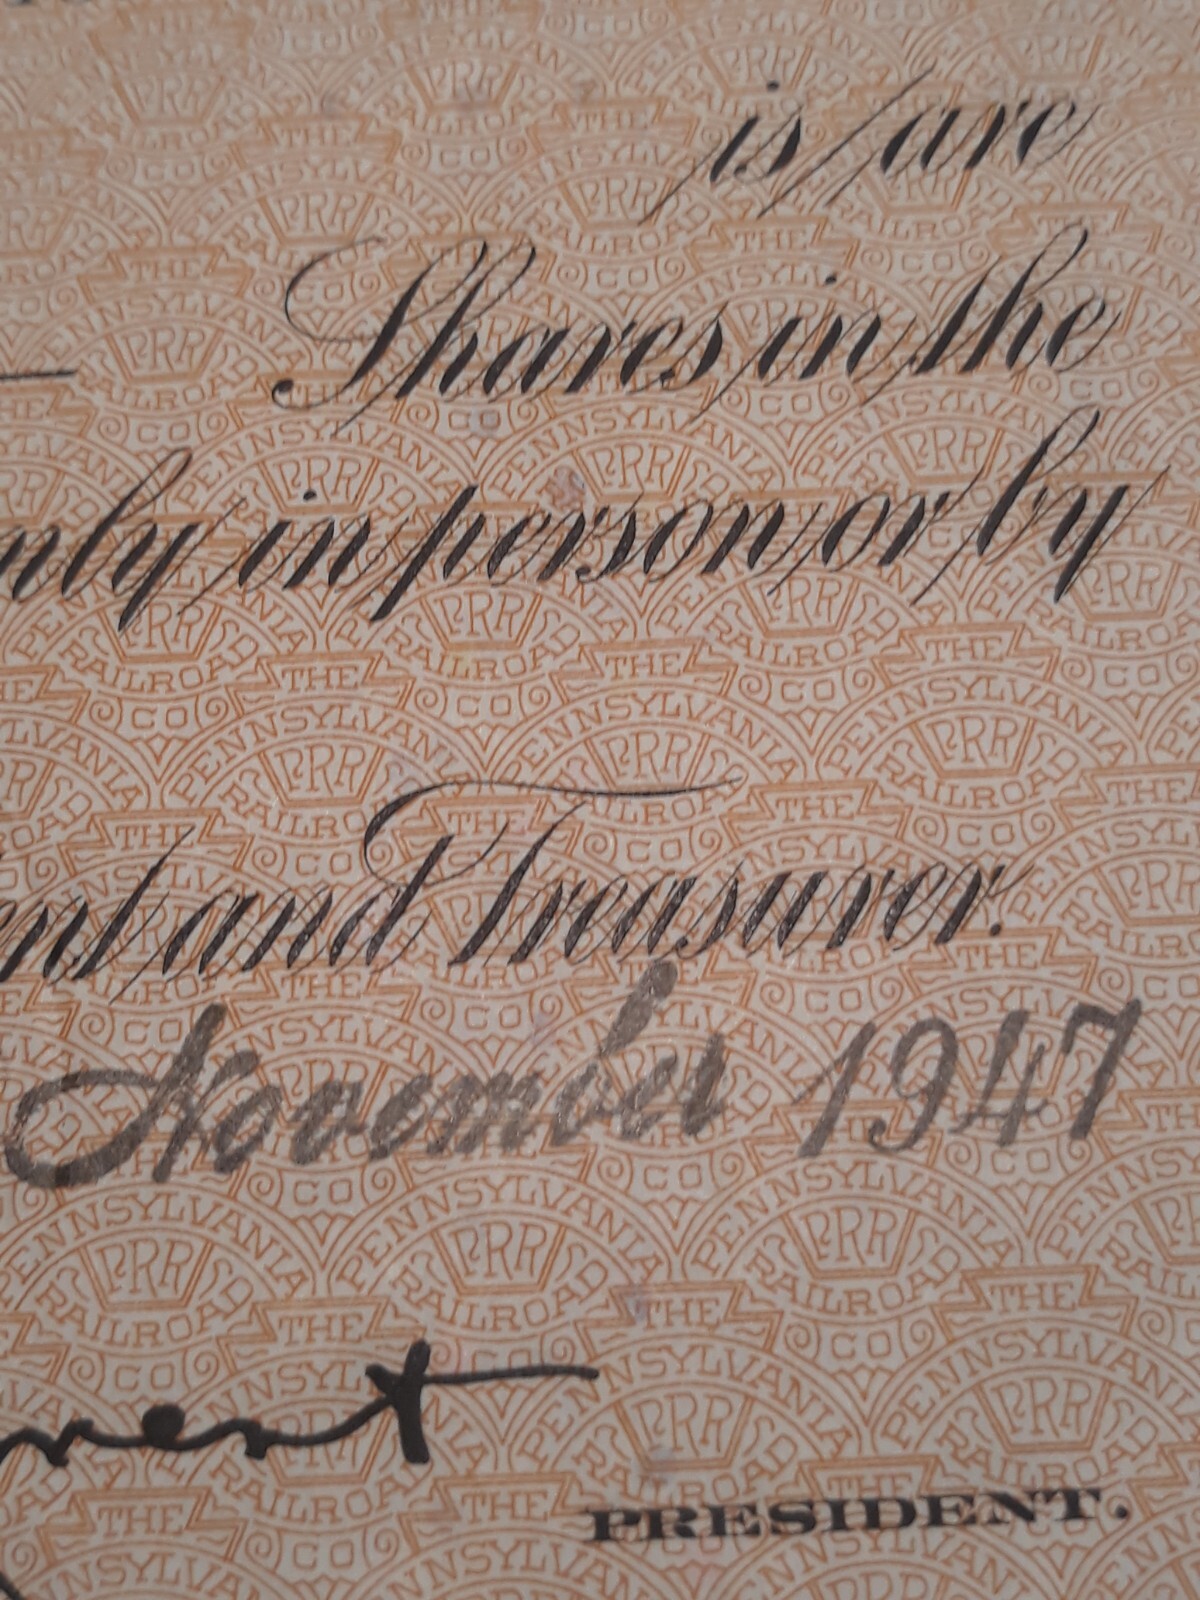 is/are
Shares in the
in person or by
and Treasurer.
November 1947
PRESIDENT.
THE PENNSYLVANIA RAILROAD CO
PRR